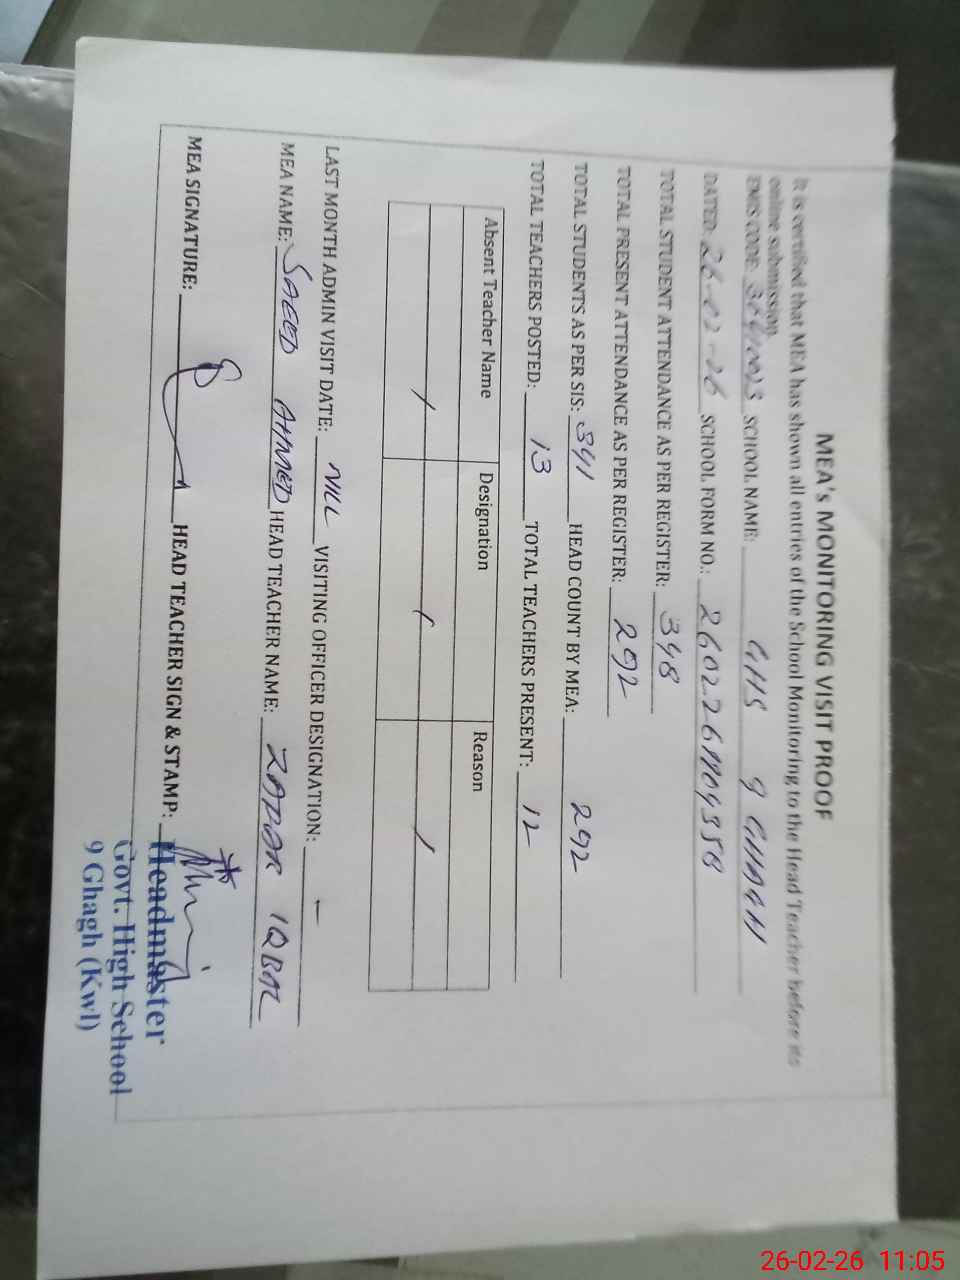 MEA's MONITORING VISIT PROOF
It is certified that MEA has shown all entries of the School Monitoring to the Head Teacher before its
online submission.
EMIS CODE: SCHOOL NAME: GHS 9 GHAGH
DATED: 26-02-26 SCHOOL FORM NO.:
TOTAL STUDENT ATTENDANCE AS PER REGISTER: 348
TOTAL PRESENT ATTENDANCE AS PER REGISTER: 292
TOTAL STUDENTS AS PER SIS: 341 HEAD COUNT BY MEA: 292
TOTAL TEACHERS POSTED: 13 TOTAL TEACHERS PRESENT: 12
Absent Teacher Name Designation Reason
/ / /
LAST MONTH ADMIN VISIT DATE: NIL VISITING OFFICER DESIGNATION: -
MEA NAME: SAEED AHMED HEAD TEACHER NAME: ZAFAR IQBAL
MEA SIGNATURE: HEAD TEACHER SIGN & STAMP:
Headmaster
Govt. High School
9 Ghagh (Kwl)
26-02-26 11:05